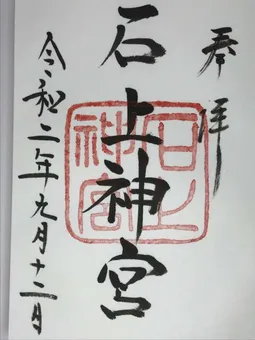 奉拝
石上神宮
石上神宮
令和二年九月十二日